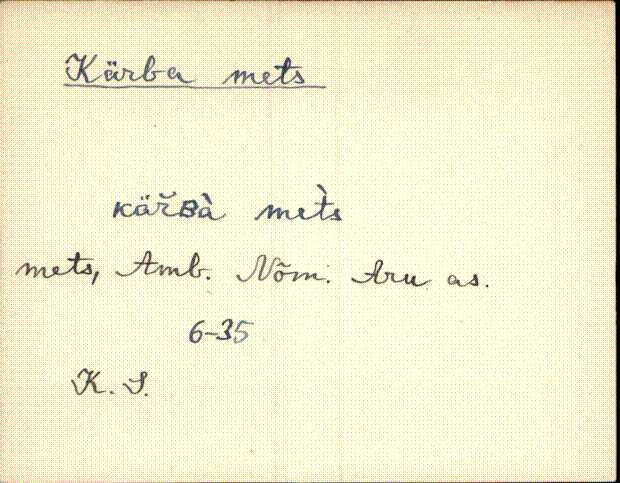 Kärba mets
κär̆ʙà met̀s
mets, Amb. Nõm. Aru as.
6-35
K. S.